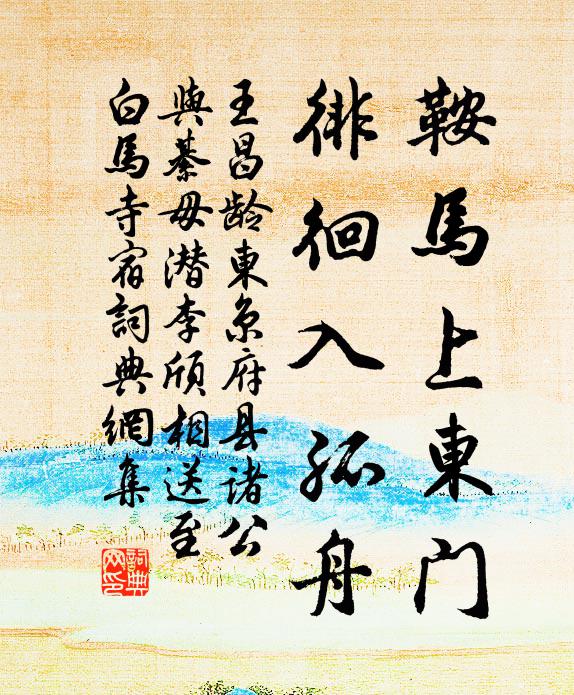 鞍馬上東门
徘徊入孤舟
王昌龄東京府县諸公
與綦毋潜李颀相送至
白馬寺宿詞典網集